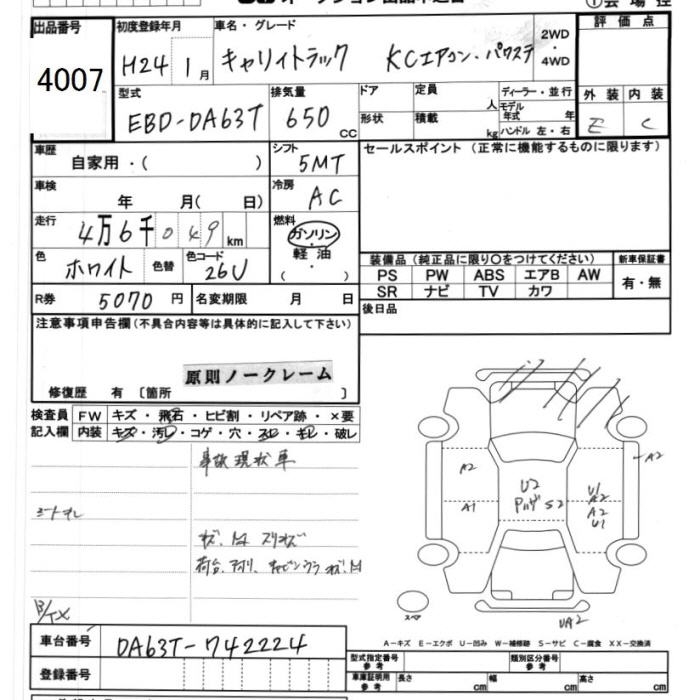 ①会場控
出品番号 初度登録年月 車名・グレード 2WD・4WD 評価点
4007 H24 1月 キャリイトラック KCエアコン・パワステ
型式 排気量 ドア 定員 人 ディーラー・並行 外装 内装
EBD-DA63T 650 CC 形状 積載 kg モデル年式 年 ハンドル 左・右 E C
車歴 自家用・( ) シフト 5MT セールスポイント（正常に機能するものに限ります）
車検 年 月( 日) 冷房 AC
走行 4万6千049 km 燃料 ガソリン・軽油・( )
色 ホワイト 色替 色コード 26U
装備品（純正品に限り○をつけてください） 新車保証書
PS PW ABS エアB AW 有・無
SR ナビ TV カワ
R券 5070 円 名変期限 月 日 後日品
注意事項申告欄（不具合内容等は具体的に記入して下さい）
原則ノークレーム
修復歴 有 〔箇所 〕
検査員 FW キズ・飛石・ヒビ割・リペア跡・×要
記入欄 内装 キズ・汚レ・コゲ・穴・スレ・キレ・破レ
事故現状車
シートオレ
A2 A1 U2 S2 U1 A2 A2 U1 A2
スペア UA2
A-キズ E-エクボ U-凹み W-補修跡 S-サビ C-腐食 XX-交換済
車台番号 DA63T-742224
登録番号
型式指定番号 参考 類別区分番号 参考
車庫証明用 参考 長さ cm 幅 cm 高さ cm